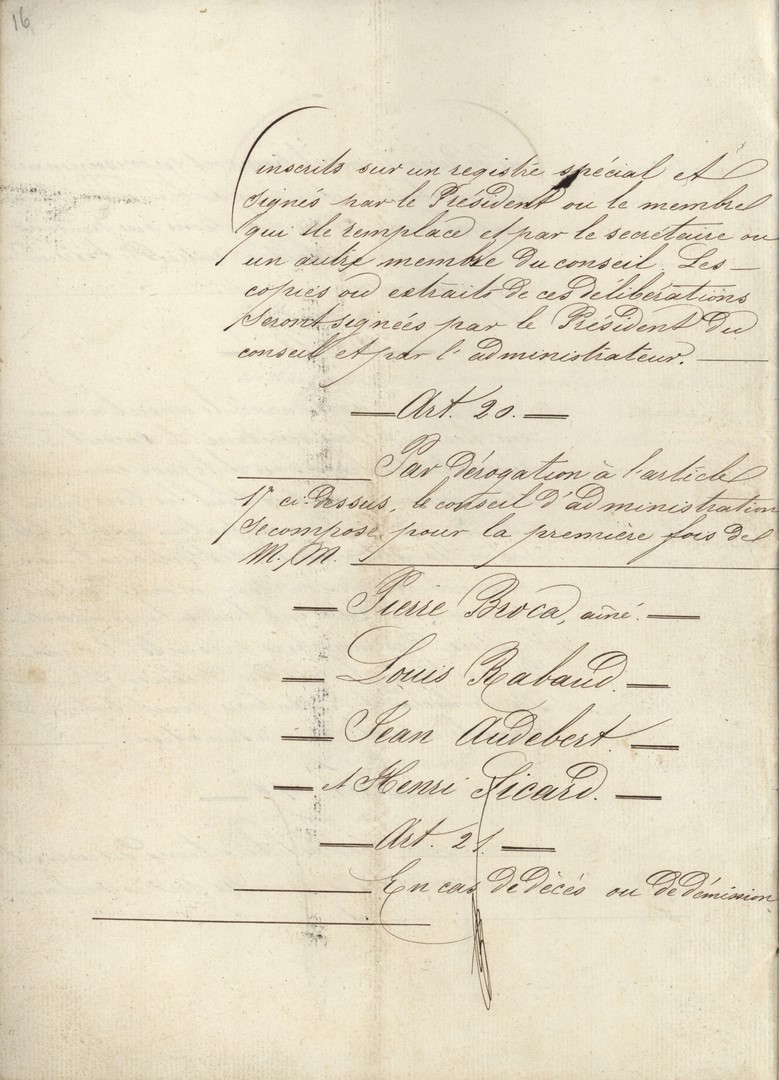 16
inscrits sur un registre spécial et
signés par le Président ou le membre
qui le remplace et par le secrétaire ou
un autre membre du conseil. Les
copies ou extraits de ces délibérations
seront signées par le Président du
conseil et par l'administrateur.
Art. 20.
Par dérogation à l'article
17 ci-dessus, le conseil d'administration
se compose pour la première fois de
M. M.
Pierre Broca, ainé.
Louis Rabaud.
Jean Audebert.
et Henri Sicard.
Art. 21.
En cas de décès ou de démission